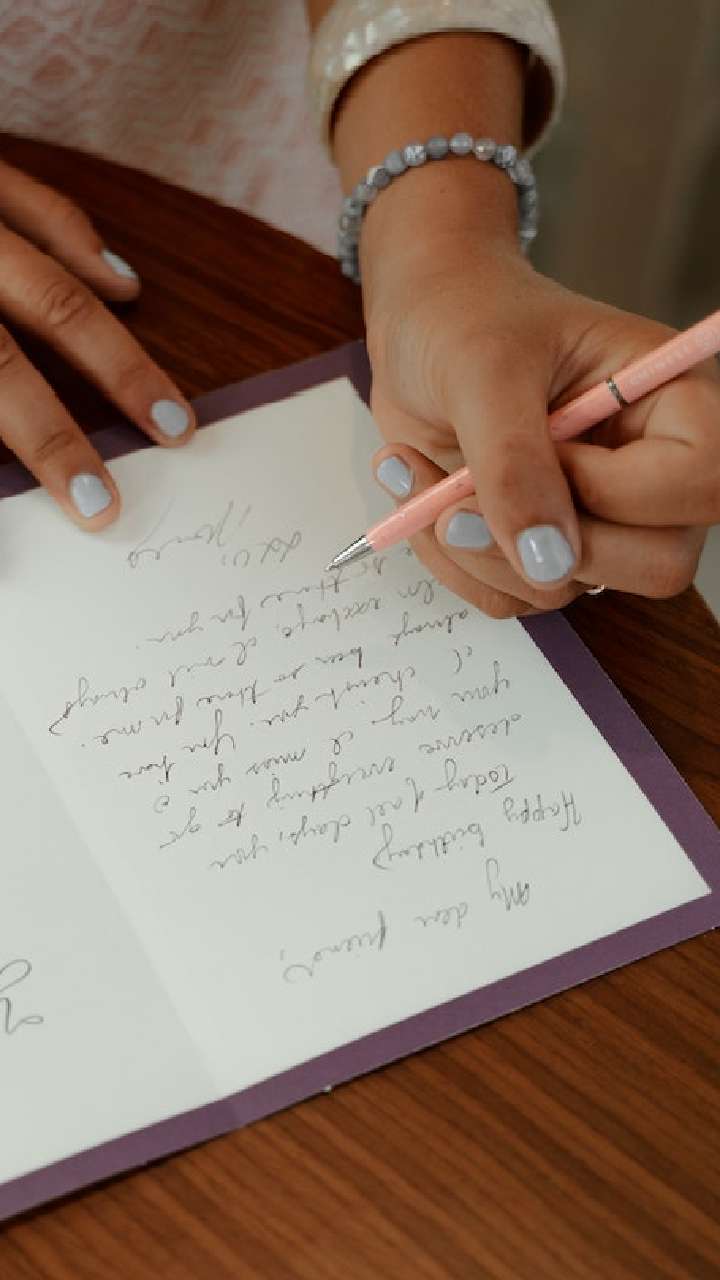 My dear friend,
Happy birthday
Today of all days, you
deserve everything to go
your way. I miss you &
I cherish you. You have
always been so there for me.
In exchange, I will always
there for you.